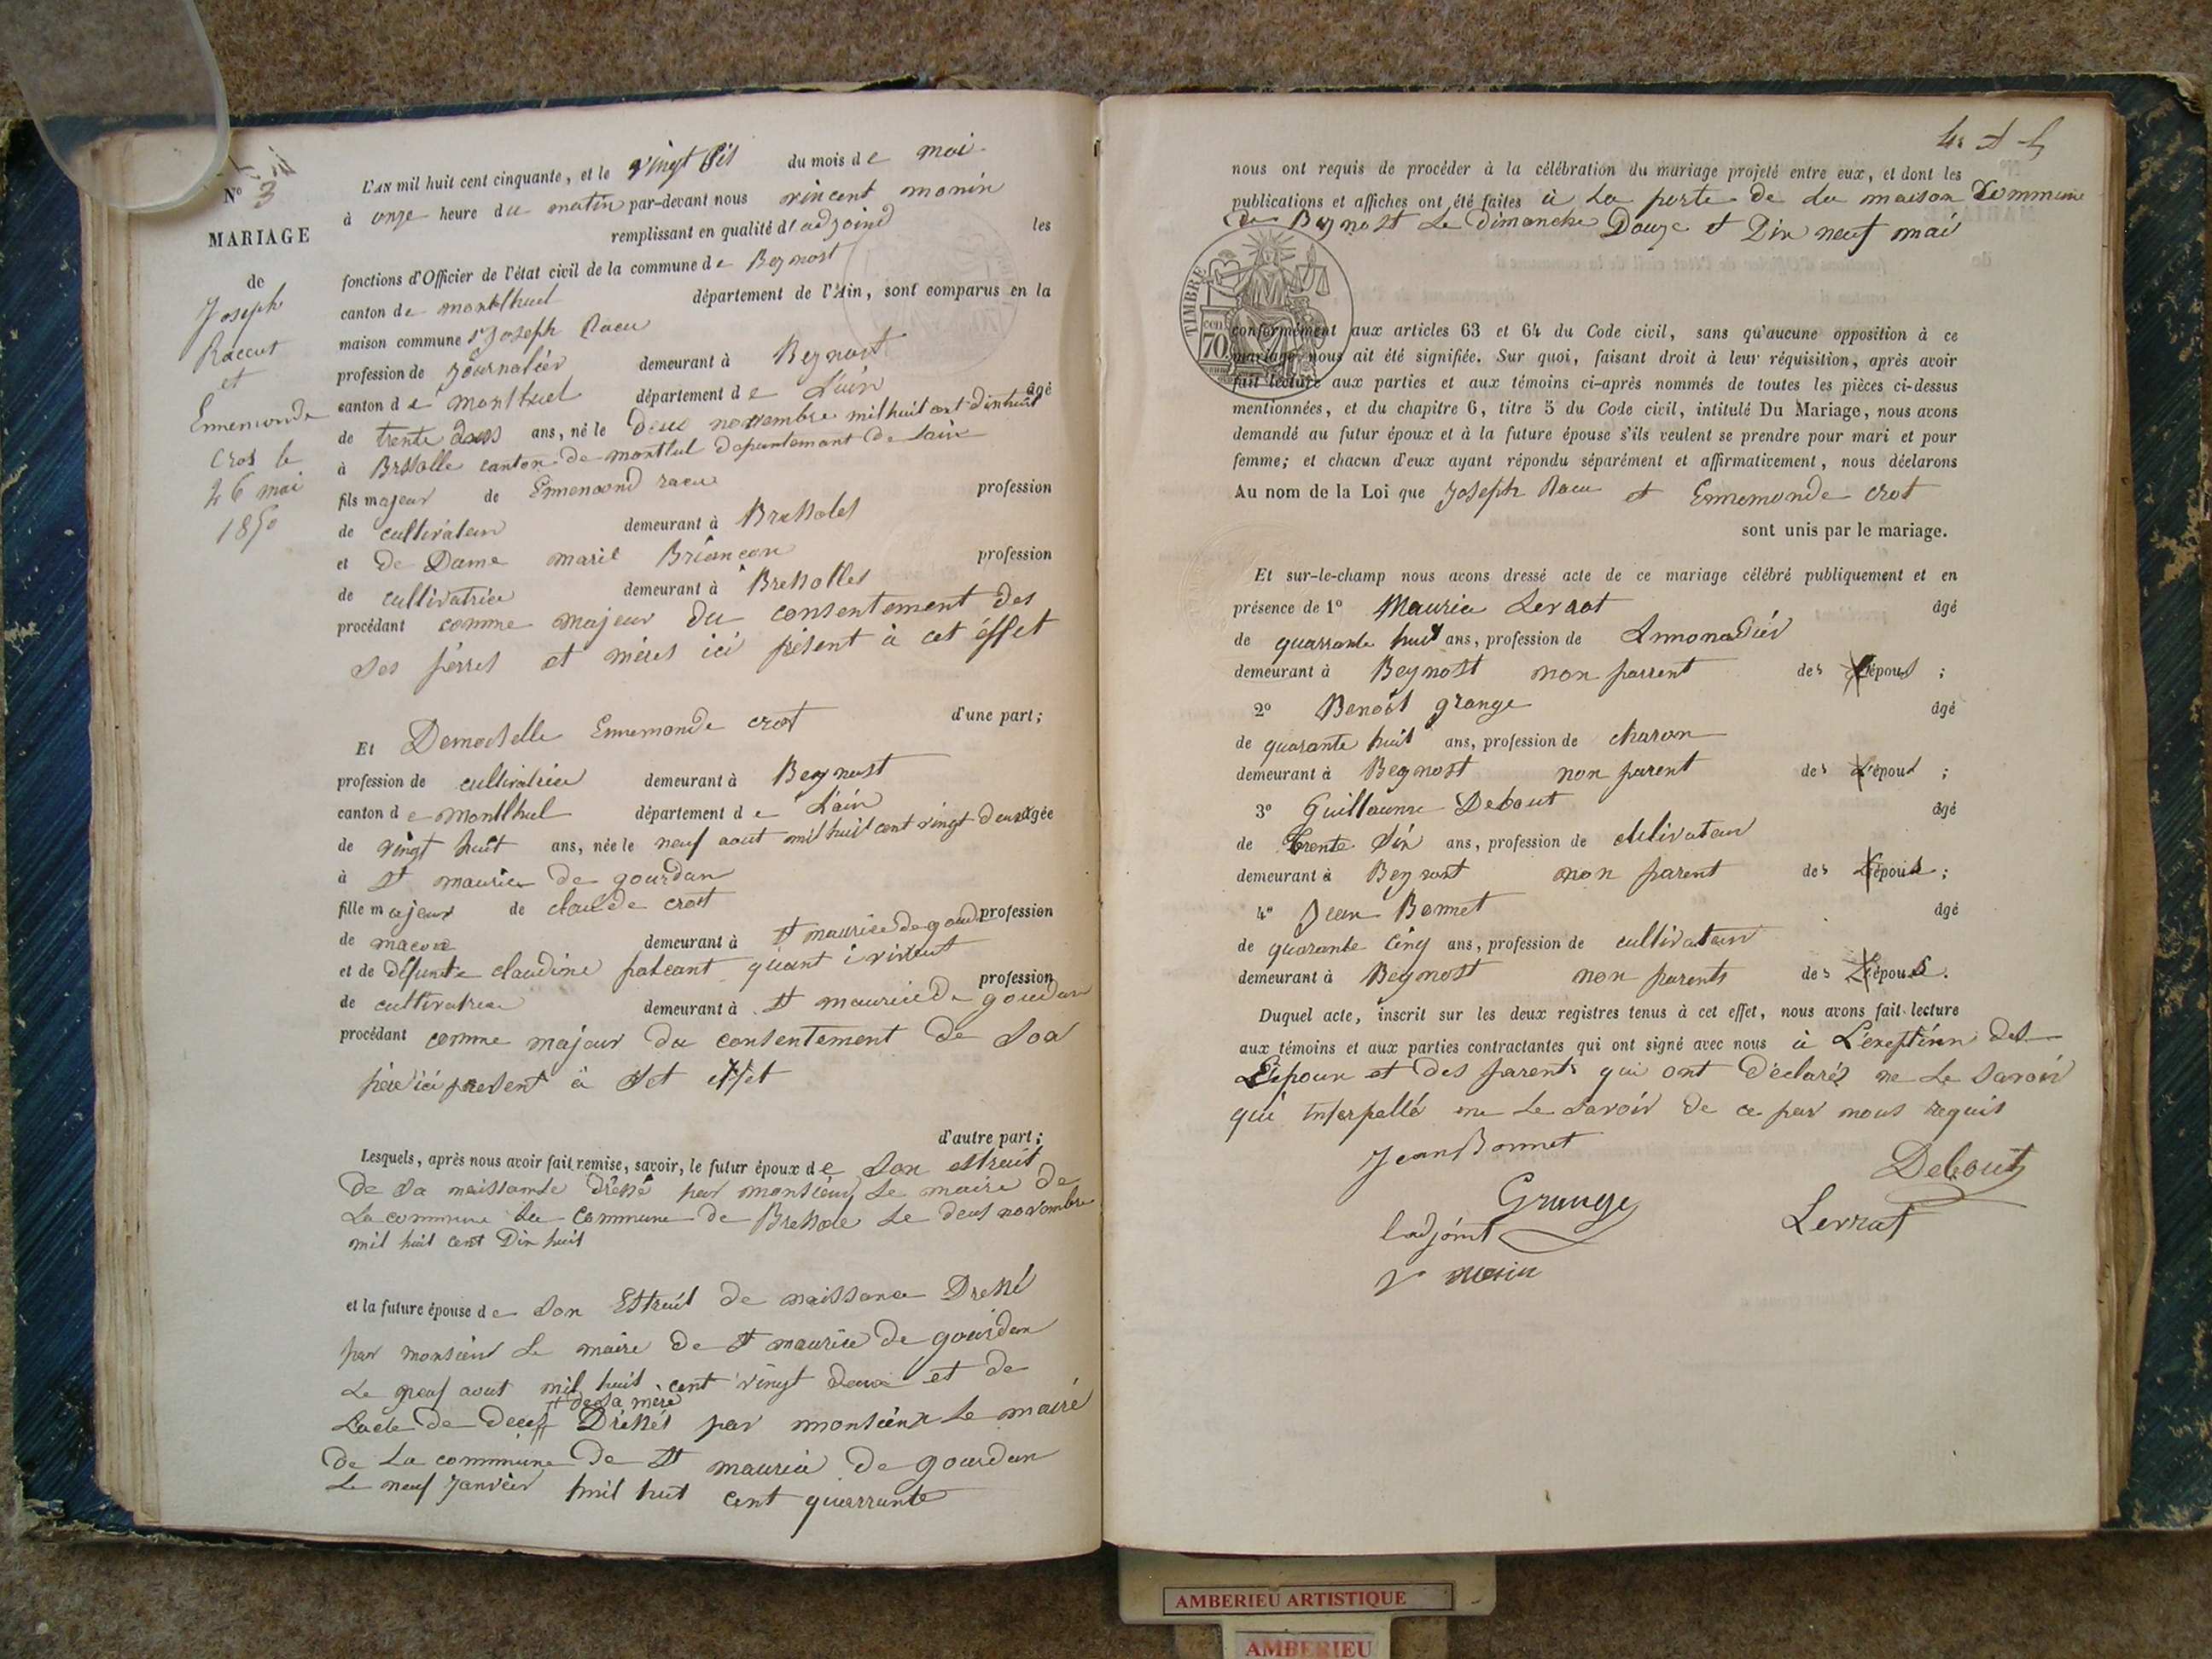 N° 3
MARIAGE
de
Joseph
Raccut
et
Ennemonde
Crot le
26 mai
1850
L'AN mil huit cent cinquante, et le vingt sis du mois de mai
à onze heure du matin par-devant nous vincent monin
remplissant en qualité d'adjoind les
fonctions d'Officier de l'état civil de la commune de Beynost
canton de montlhuel département de l'Ain, sont comparus en la
maison commune Sr Joseph Racu
profession de journaliér demeurant à Beynost
canton de montluel département de L'ain âgé
de trente deus ans, né le deus novembre mil huit cent dixhuit
à Brssolle canton de montlul departemant de Lain
fils majeur de Ennemond racu profession
de cultivateur demeurant à Bressoles
et de Dame marie Briancon profession
de cultivatrice demeurant à Bressolles
procédant comme majeur du consentement des
ses pérres et méres ici présent à cet éffet
d'une part;
Et Demoiselle Ennemonde crot
profession de cultivatrice demeurant à Beynost
canton de montlhuel département de L'ain âgée
de vingt huit ans, née le neuf aout mil huit cent vingt deux
à St maurice de gourdan
fille majeur de claude crot profession
de macon demeurant à St maurice de gourdan
et de défunte claudine pateant quant i vivent profession
de cultivatrice demeurant à St maurice de gourdan
procédant comme majour du consentement de son
père ici present à set effet
d'autre part;
Lesquels, après nous avoir fait remise, savoir, le futur époux de son estreit
de sa naissance dréssé par monsieur le maire de
La commune La commune de Bressole le deus novembre
mil huit cent Dix huit
et la future épouse de son Estreit de naissance Dressé
par monsieur le maire de St maurice de gourdan
Le neuf aout mil huit cent vingt deux et de
de sa mère
Lacte de decés Dréssés par monsieur le maire
de La commune de St maurice de gourdan
Le neuf janvier mil huit cent quarrante
nous ont requis de procéder à la célébration du mariage projeté entre eux, et dont les
publications et affiches ont été faites à La porte de da maison Commune
de Beynost Le Dimanche Douze et Dix neuf mai
TIMBRE
70
conformément aux articles 63 et 64 du Code civil, sans qu'aucune opposition à ce
mariage nous ait été signifiée. Sur quoi, faisant droit à leur réquisition, après avoir
fait lecture aux parties et aux témoins ci-après nommés de toutes les pièces ci-dessus
mentionnées, et du chapitre 6, titre 5 du Code civil, intitulé Du Mariage, nous avons
demandé au futur époux et à la future épouse s'ils veulent se prendre pour mari et pour
femme; et chacun d'eux ayant répondu séparément et affirmativement, nous déclarons
Au nom de la Loi que Joseph Racu et Ennemonde crot
sont unis par le mariage.
Et sur-le-champ nous avons dressé acte de ce mariage célébré publiquement et en
présence de 1° Maurice Levrat âgé
de quarrante huit ans, profession de Limonadiér
demeurant à Beynost non parrent des épous ;
2° Benoit grange âgé
de quarante huit ans, profession de charon
demeurant à Beynost non parent des épous ;
3° Guillaume Debout âgé
de trente six ans, profession de cultivateur
demeurant à Beynost non parent des épous ;
4° Jean Bonnet âgé
de quarante cinq ans, profession de cultivateur
demeurant à Beynost non parents des épous.
Duquel acte, inscrit sur les deux registres tenus à cet effet, nous avons fait lecture
aux témoins et aux parties contractantes qui ont signé avec nous à L'éxeptinn des
L'époux et des parents qui ont déclarés ne le savoir
qui interpellé ne le savoir de ce par nous requis
Jean Bonnet
Debout
Grange
Levrat
ladjoint
V monin
AMBERIEU ARTISTIQUE
AMBERIEU